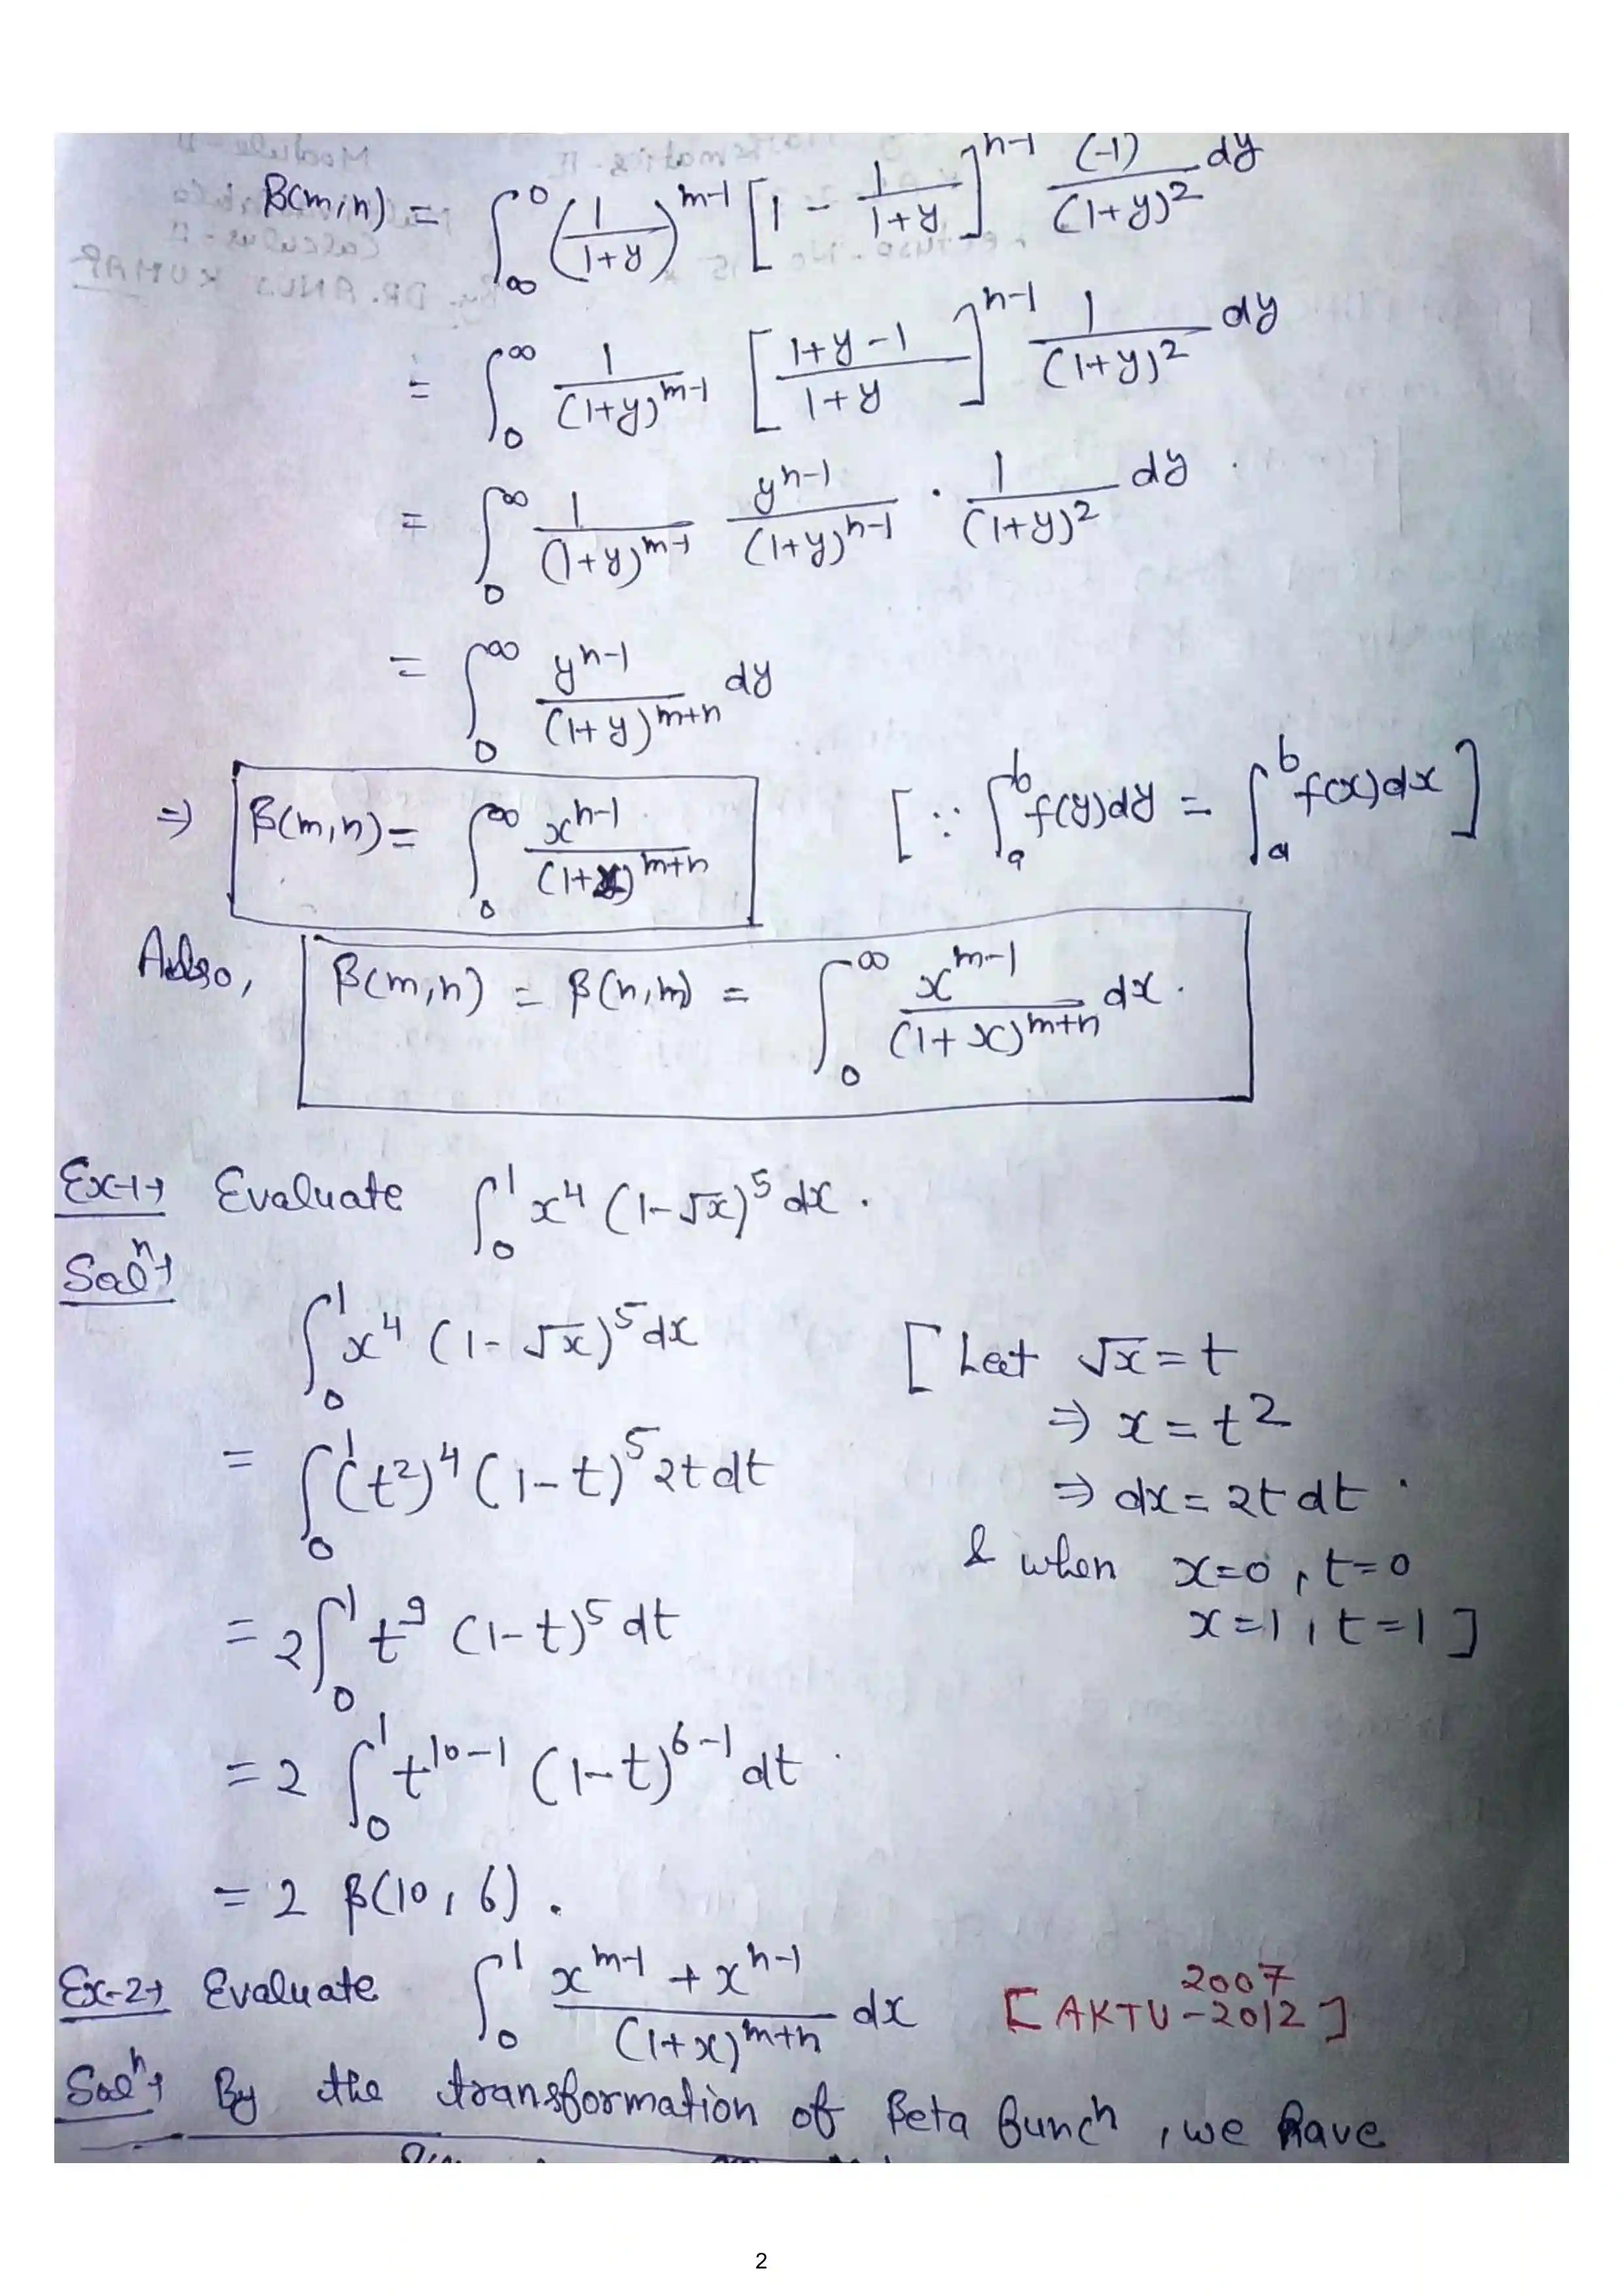 β(m,n) = ∫_∞^0 (1/(1+y))^{m-1} [1 - 1/(1+y)]^{n-1} (-1)/(1+y)^2 dy
= ∫_0^∞ 1/(1+y)^{m-1} [(1+y-1)/(1+y)]^{n-1} 1/(1+y)^2 dy
= ∫_0^∞ 1/(1+y)^{m-1} y^{n-1}/(1+y)^{n-1} · 1/(1+y)^2 dy
= ∫_0^∞ y^{n-1}/(1+y)^{m+n} dy
⇒ β(m,n) = ∫_0^∞ x^{n-1}/(1+x)^{m+n} [∵ ∫_a^b f(y)dy = ∫_a^b f(x)dx]
Also, β(m,n) = β(n,m) = ∫_0^∞ x^{m-1}/(1+x)^{m+n} dx.
Ex-1→ Evaluate ∫_0^1 x^4 (1-√x)^5 dx.
Sol^n→
∫_0^1 x^4 (1-√x)^5 dx [Let √x = t
⇒ x = t^2
= ∫_0^1 (t^2)^4 (1-t)^5 2t dt ⇒ dx = 2t dt
& when x=0, t=0
= 2∫_0^1 t^9 (1-t)^5 dt x=1, t=1]
= 2 ∫_0^1 t^{10-1} (1-t)^{6-1} dt
= 2 β(10, 6).
Ex-2→ Evaluate ∫_0^1 (x^{m-1} + x^{n-1})/(1+x)^{m+n} dx [AKTU-2012] 2007
Sol^n→ By the transformation of Beta func^n, we have
2